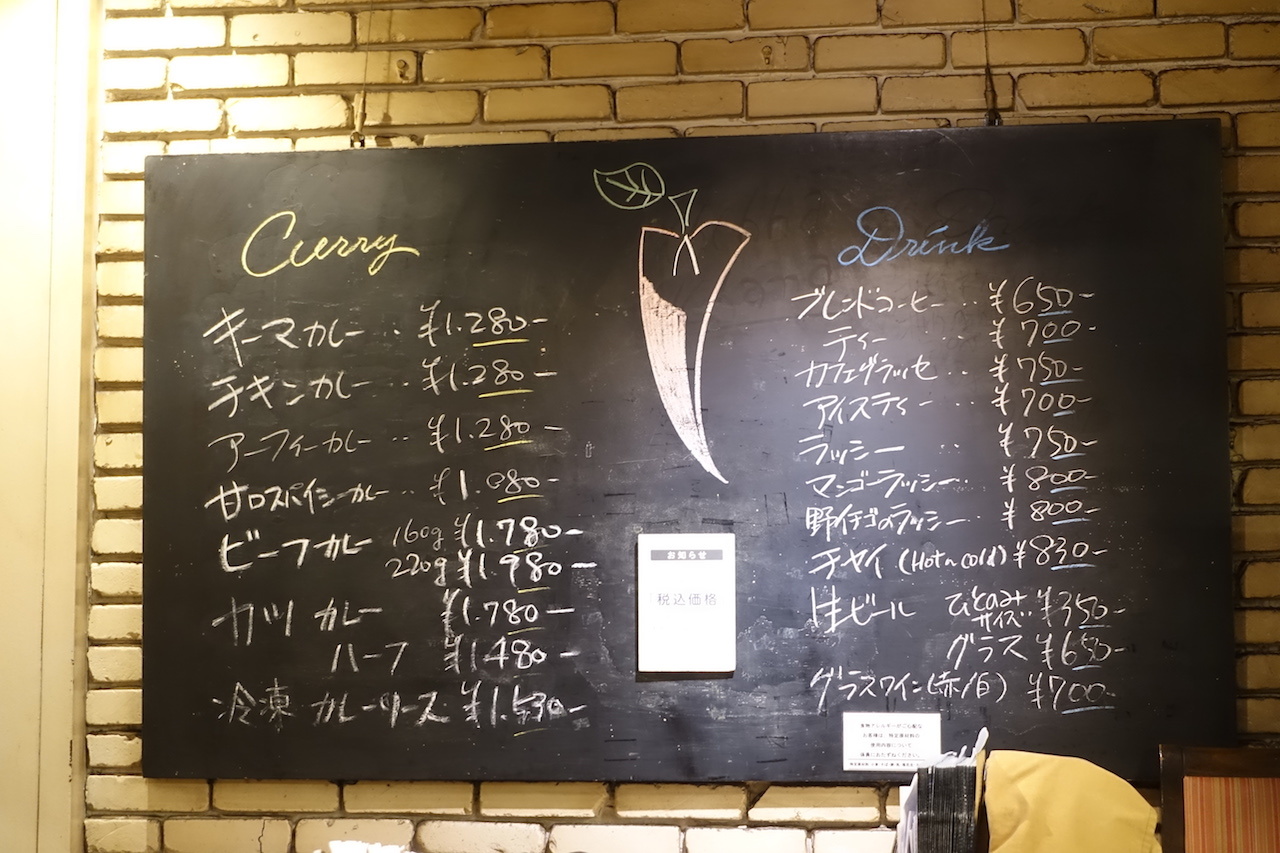 Curry
キーマカレー‥¥1.280-
チキンカレー‥¥1.280-
アーフィーカレー‥¥1.280-
甘口スパイシーカレー‥¥1.080-
ビーフカレー 160g ¥1.780-
220g ¥1.980-
カツカレー ¥1.780-
ハーフ ¥1480-
冷凍カレーソース ¥1.530-
お知らせ
税込価格
Drink
ブレンドコーヒー‥¥650-
ティー‥¥700-
カフェグラッセ‥¥750-
アイスティー‥¥700-
ラッシー‥¥750-
マンゴーラッシー‥¥800-
野イチゴのラッシー‥¥800-
チャイ(Hot or cold)¥830-
生ビール ひとのみサイズ‥¥350-
グラス ¥650-
グラスワイン(赤/白) ¥700-
食物アレルギーがご心配な
お客様は、特定原材料の
使用内容について
係員におたずねください。